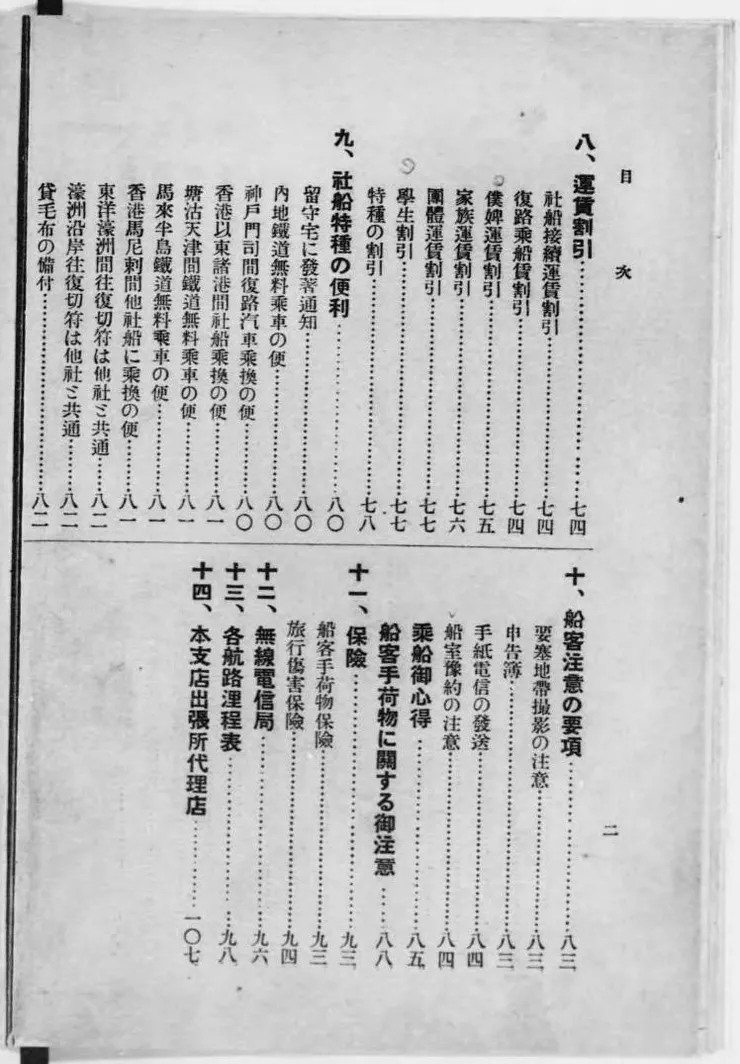 目次
八、運賃割引……七四
社船接續運賃割引……七四
復路乘船賃割引……七四
僕婢運賃割引……七五
家族運賃割引……七六
團體運賃割引……七七
學生割引……七七
特種の割引……七八
九、社船特種の便利……八〇
留守宅に發著通知……八〇
內地鐵道無料乘車の便……八〇
神戶門司間復路汽車乘換の便……八〇
香港以東諸港間社船乘換の便……八一
塘沽天津間鐵道無料乘車の便……八一
馬來半島鐵道無料乘車の便……八一
香港馬尼剌間他社船に乘換の便……八一
東洋濠洲間往復切符は他社と共通……八二
濠洲沿岸往復切符は他社と共通……八二
貸毛布の備付……八二
十、船客注意の要項……八三
要塞地帶撮影の注意……八三
申告簿……八三
手紙電信の發送……八四
船室豫約の注意……八四
乘船御心得……八五
船客手荷物に關する御注意……八八
十一、保險……九三
船客手荷物保險……九三
旅行傷害保險……九四
十二、無線電信局……九六
十三、各航路浬程表……九八
十四、本支店出張所代理店……一〇七
二